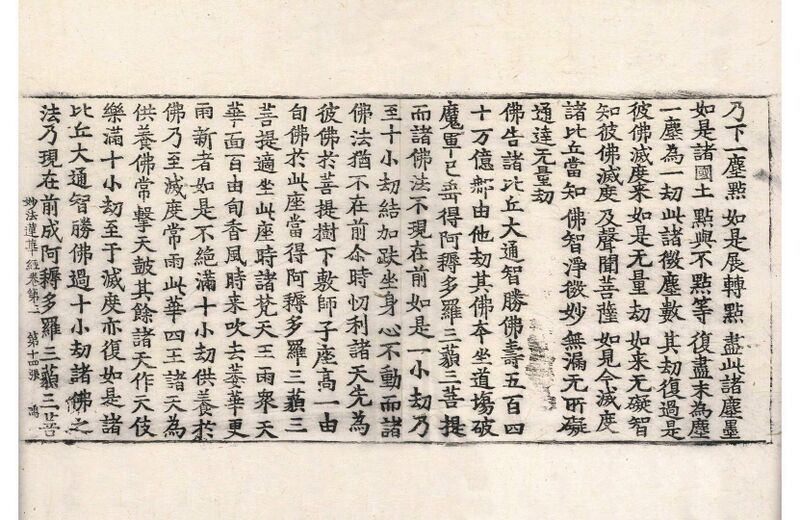 乃下一塵㸃　如是展轉㸃　盡此諸塵墨
如是諸國土　㸃與不㸃等　復盡末為塵
一塵為一劫　此諸微塵數　其劫復過是
彼佛滅度来　如是无量劫　如来无礙智
知彼佛滅度　及聲聞菩薩　如見今滅度
諸比丘當知　佛智淨微妙　無漏无所礙
通達无量劫
佛告諸比丘大通智勝佛壽五百四
十万億那由他劫其佛本坐道塲破
魔軍已垂得阿耨多羅三藐三菩提
而諸佛法不現在前如是一小劫乃
至十小劫結加趺坐身心不動而諸
佛法猶不在前尒時忉利諸天先為
彼佛於菩提樹下敷師子座高一由
旬佛於此座當得阿耨多羅三藐三
菩提適坐此座時諸梵天王雨衆天
華面百由旬香風時来吹去萎華更
雨新者如是不絕滿十小劫供養於
佛乃至滅度常雨此華四王諸天為
供養佛常擊天鼓其餘諸天作天伎
樂滿十小劫至于滅度亦復如是諸
比丘大通智勝佛過十小劫諸佛之
法乃現在前成阿耨多羅三藐三菩
妙法蓮華經卷第三　第十四張　鳴